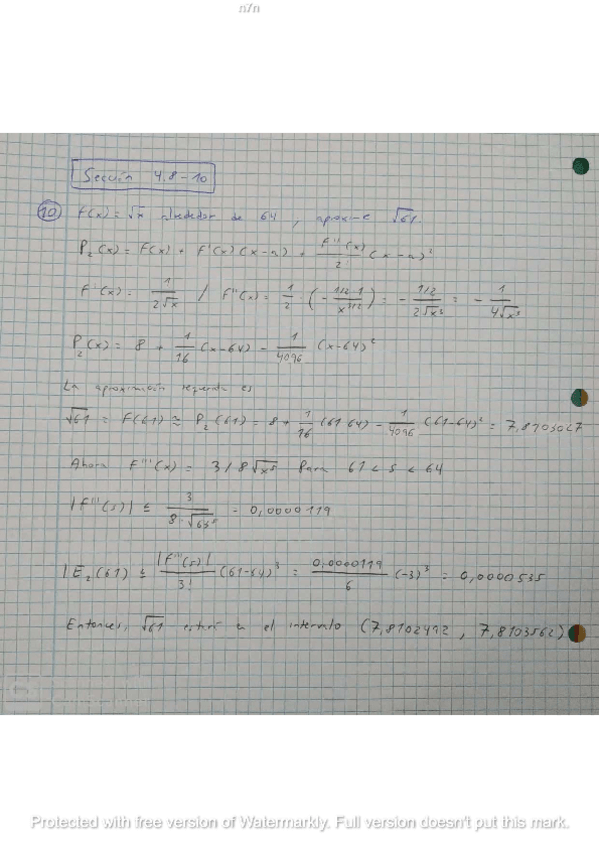 n7n
Sección 4.8-10
10 F(x) = √x alrededor de 64, aproxime √61.
P₂(x) = F(x) + F'(x)(x-a) + F''(x)/2! (x-a)²
F'(x) = 1/2√x / F''(x) = 1/2 · (- 1/2·1/x^3/2) = - 1/2/2√x³ = - 1/4√x³
P₂(x) = 8 + 1/16 (x-64) - 1/4096 (x-64)²
La aproximación requerida es
√61 = F(61) ≅ P₂(61) = 8 + 1/16 (61-64) - 1/4096 (61-64)² = 7,8103027
Ahora F'''(x) = 3/8√x⁵ Para 61 < s < 64
|F'''(s)| ≤ 3/8·√ = 0,0000119
|E₂(61) ≤ |F'''(s)|/3! (61-64)³ = 0,0000119/6 (-3)³ = 0,0000535
Entonces, √61 estará en el intervalo (7,8102492, 7,8103562)
Protected with free version of Watermarkly. Full version doesn't put this mark.